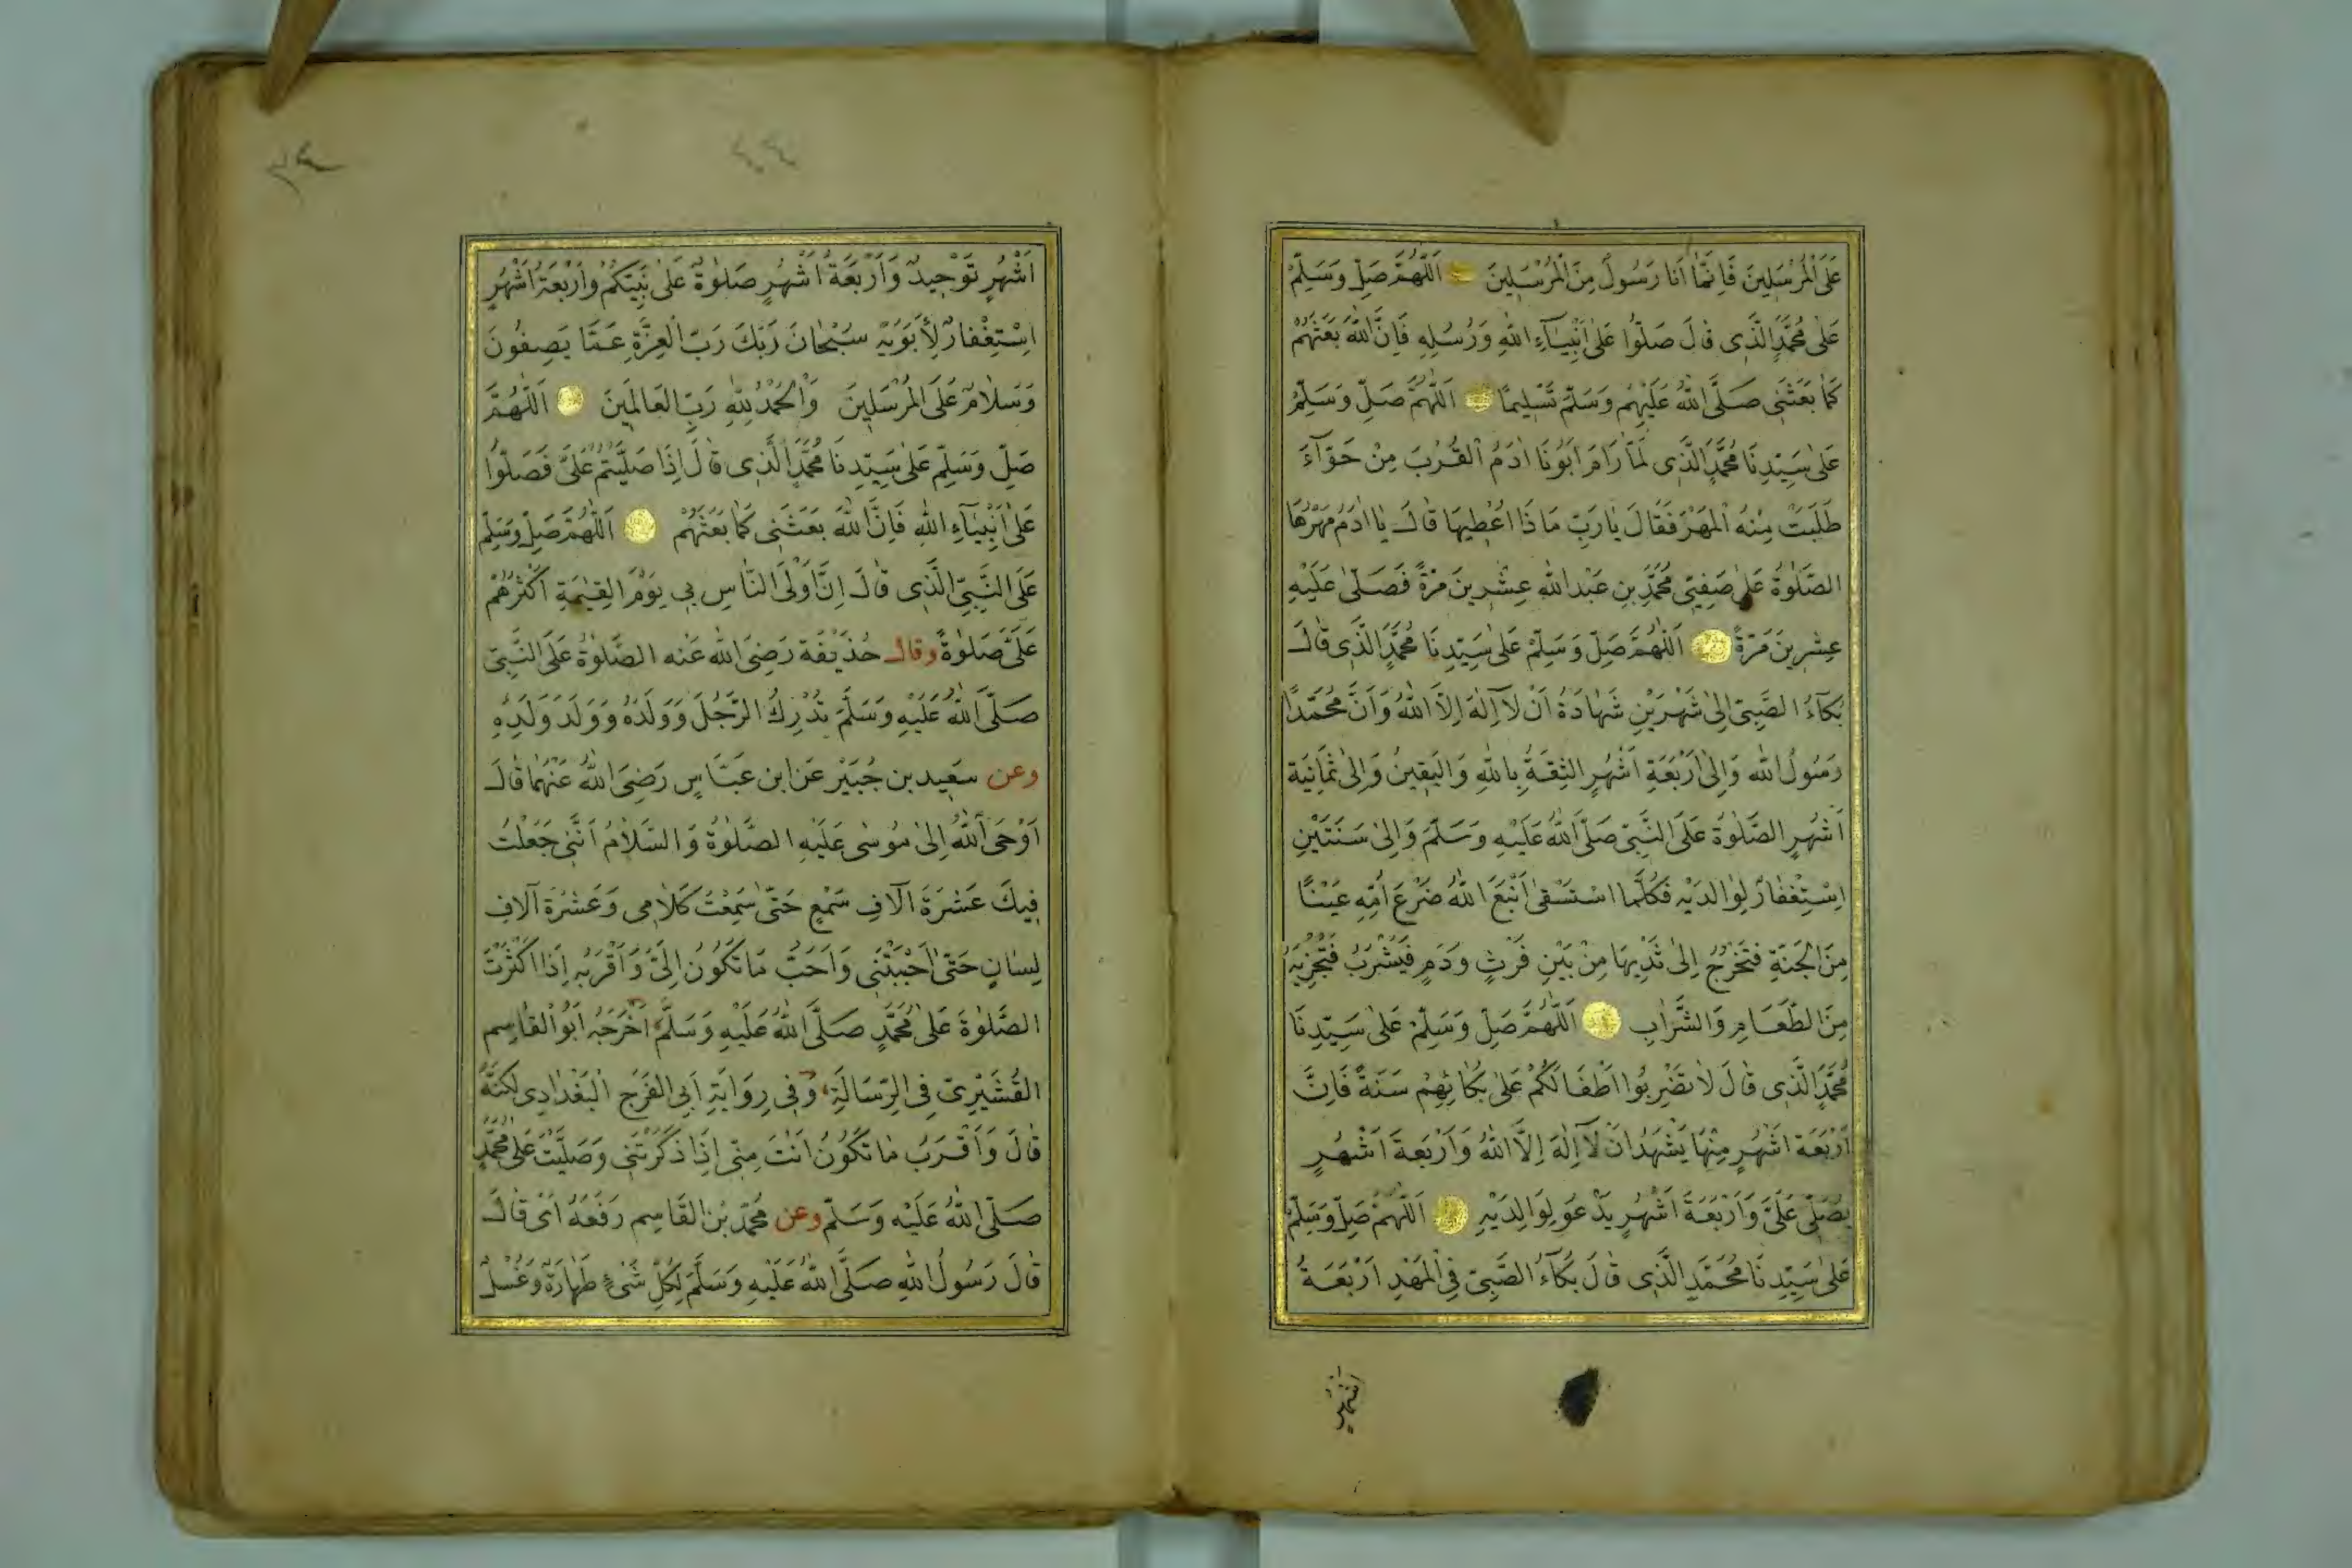 عَلَى الْمُرْسَلِينَ فَاِنَّمَا اَنَا رَسُولٌ مِنَ الْمُرْسَلِينَ اَللّٰهُمَّ صَلِّ وَسَلِّمْ
عَلٰى مُحَمَّدٍ الَّذِى قَالَ صَلُّوا عَلٰى اَنْبِيَآءِ اللّٰهِ وَرُسُلِهِ فَاِنَّ اللّٰهَ بَعَثَهُمْ
كَمَا بَعَثَنِى صَلَّى اللّٰهُ عَلَيْهِمْ وَسَلَّمَ تَسْلِيمًا اَللّٰهُمَّ صَلِّ وَسَلِّمْ
عَلٰى سَيِّدِنَا مُحَمَّدٍ الَّذِى لَمَّا رَامَ اَبُونَا اٰدَمُ الْقُرْبَ مِنْ حَوَّآءَ
طَلَبَتْ مِنْهُ الْمَهْرَ فَقَالَ يَا رَبِّ مَاذَا اُعْطِيهَا قَالَ يَا اٰدَمُ مَهْرُهَا
الصَّلٰوةُ عَلٰى صَفِيِّى مُحَمَّدِ بْنِ عَبْدِ اللّٰهِ عِشْرِينَ مَرَّةً فَصَلّٰى عَلَيْهِ
عِشْرِينَ مَرَّةً اَللّٰهُمَّ صَلِّ وَسَلِّمْ عَلٰى سَيِّدِنَا مُحَمَّدٍ الَّذِى قَالَ
بُكَآءُ الصَّبِىِّ اِلٰى شَهْرَيْنِ شَهَادَةُ اَنْ لَآ اِلٰهَ اِلَّا اللّٰهُ وَاَنَّ مُحَمَّدًا
رَسُولُ اللّٰهِ وَاِلٰى اَرْبَعَةِ اَشْهُرٍ الثِّقَةُ بِاللّٰهِ وَالْيَقِينُ وَاِلٰى ثَمَانِيَةِ
اَشْهُرٍ الصَّلٰوةُ عَلَى النَّبِىِّ صَلَّى اللّٰهُ عَلَيْهِ وَسَلَّمَ وَاِلٰى سَنَتَيْنِ
اِسْتِغْفَارٌ لِوَالِدَيْهِ فَكُلَّمَا اسْتَسْقٰى اَنْبَعَ اللّٰهُ ضَرْعَ اُمِّهِ عَيْنًا
مِنَ الْجَنَّةِ فَتَخْرُجُ اِلٰى ثَدْيِهَا مِنْ بَيْنِ فَرْثٍ وَدَمٍ فَيَشْرَبُ فَتُجْزِيهِ
مِنَ الطَّعَامِ وَالشَّرَابِ اَللّٰهُمَّ صَلِّ وَسَلِّمْ عَلٰى سَيِّدِنَا
مُحَمَّدٍ الَّذِى قَالَ لَا تَضْرِبُوا اَطْفَالَكُمْ عَلٰى بُكَائِهِمْ سَنَةً فَاِنَّ
اَرْبَعَةَ اَشْهُرٍ مِنْهَا يَشْهَدُ اَنْ لَآ اِلٰهَ اِلَّا اللّٰهُ وَاَرْبَعَةَ اَشْهُرٍ
يُصَلِّى عَلَىَّ وَاَرْبَعَةَ اَشْهُرٍ يَدْعُو لِوَالِدَيْهِ اَللّٰهُمَّ صَلِّ وَسَلِّمْ
عَلٰى سَيِّدِنَا مُحَمَّدٍ الَّذِى قَالَ بُكَآءُ الصَّبِىِّ فِى الْمَهْدِ اَرْبَعَةُ
اشهر
٣٤
٤٤
اَشْهُرٍ تَوْحِيدٌ وَاَرْبَعَةُ اَشْهُرٍ صَلٰوةٌ عَلٰى نَبِيِّكُمْ وَاَرْبَعَةُ اَشْهُرٍ
اِسْتِغْفَارٌ لِاَبَوَيْهِ سُبْحَانَ رَبِّكَ رَبِّ الْعِزَّةِ عَمَّا يَصِفُونَ
وَسَلَامٌ عَلَى الْمُرْسَلِينَ وَالْحَمْدُ لِلّٰهِ رَبِّ الْعَالَمِينَ اَللّٰهُمَّ
صَلِّ وَسَلِّمْ عَلٰى سَيِّدِنَا مُحَمَّدٍ الَّذِى قَالَ اِذَا صَلَّيْتُمْ عَلَىَّ فَصَلُّوا
عَلٰى اَنْبِيَآءِ اللّٰهِ فَاِنَّ اللّٰهَ بَعَثَنِى كَمَا بَعَثَهُمْ اَللّٰهُمَّ صَلِّ وَسَلِّمْ
عَلَى النَّبِىِّ الَّذِى قَالَ اِنَّ اَوْلَى النَّاسِ بِى يَوْمَ الْقِيٰمَةِ اَكْثَرُهُمْ
عَلَىَّ صَلٰوةً وقال حُذَيْفَة رَضِىَ اللّٰه عَنْه الصَّلٰوةُ عَلَى النَّبِىِّ
صَلَّى اللّٰهُ عَلَيْهِ وَسَلَّمَ تُدْرِكُ الرَّجُلَ وَوَلَدَهُ وَوَلَدَ وَلَدِهِ
وعن سَعِيد بن جُبَيْر عَن ابن عَبَّاسٍ رَضِىَ اللّٰهُ عَنْهُمَا قَالَ
اَوْحَى اللّٰهُ اِلٰى مُوسٰى عَلَيْهِ الصَّلٰوةُ وَالسَّلَامُ اَنَّنِى جَعَلْتُ
فِيكَ عَشَرَةَ آلَافِ سَمْعٍ حَتّٰى سَمِعْتَ كَلَامِى وَعَشَرَةَ آلَافِ
لِسَانٍ حَتّٰى اَجَبْتَنِى وَاَحَبُّ مَا تَكُونُ اِلَىَّ وَاَقْرَبُهِ اِذَا اَكْثَرْتَ
الصَّلٰوةَ عَلٰى مُحَمَّدٍ صَلَّى اللّٰهُ عَلَيْهِ وَسَلَّمَ اَخْرَجَهُ اَبُو الْقَاسِمِ
الْقُشَيْرِىّ فِى الرِّسَالَةِ وَفِى رِوَايَةِ اَبِى الْفَرَجِ الْبَغْدَادِى لَكِنَّهُ
قَالَ وَاَقْرَبُ مَا تَكُونُ اَنْتَ مِنِّى اِذَا ذَكَرْتَنِى وَصَلَّيْتَ عَلٰى مُحَمَّدٍ
صَلَّى اللّٰهُ عَلَيْهِ وَسَلَّمَ وعن مُحَمَّدِ بْنِ الْقَاسِمِ رَفَعَهُ اَىْ قَالَ
قَالَ رَسُولُ اللّٰهِ صَلَّى اللّٰهُ عَلَيْهِ وَسَلَّمَ لِكُلِّ شَىْءٍ طَهَارَةٌ وَغُسْلٌ